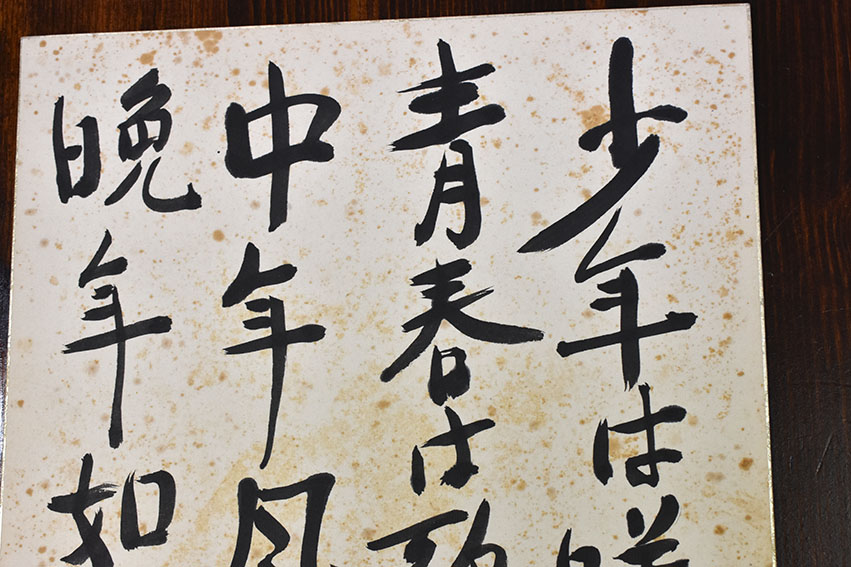 少年は
青春は歌
中年風
晩年如